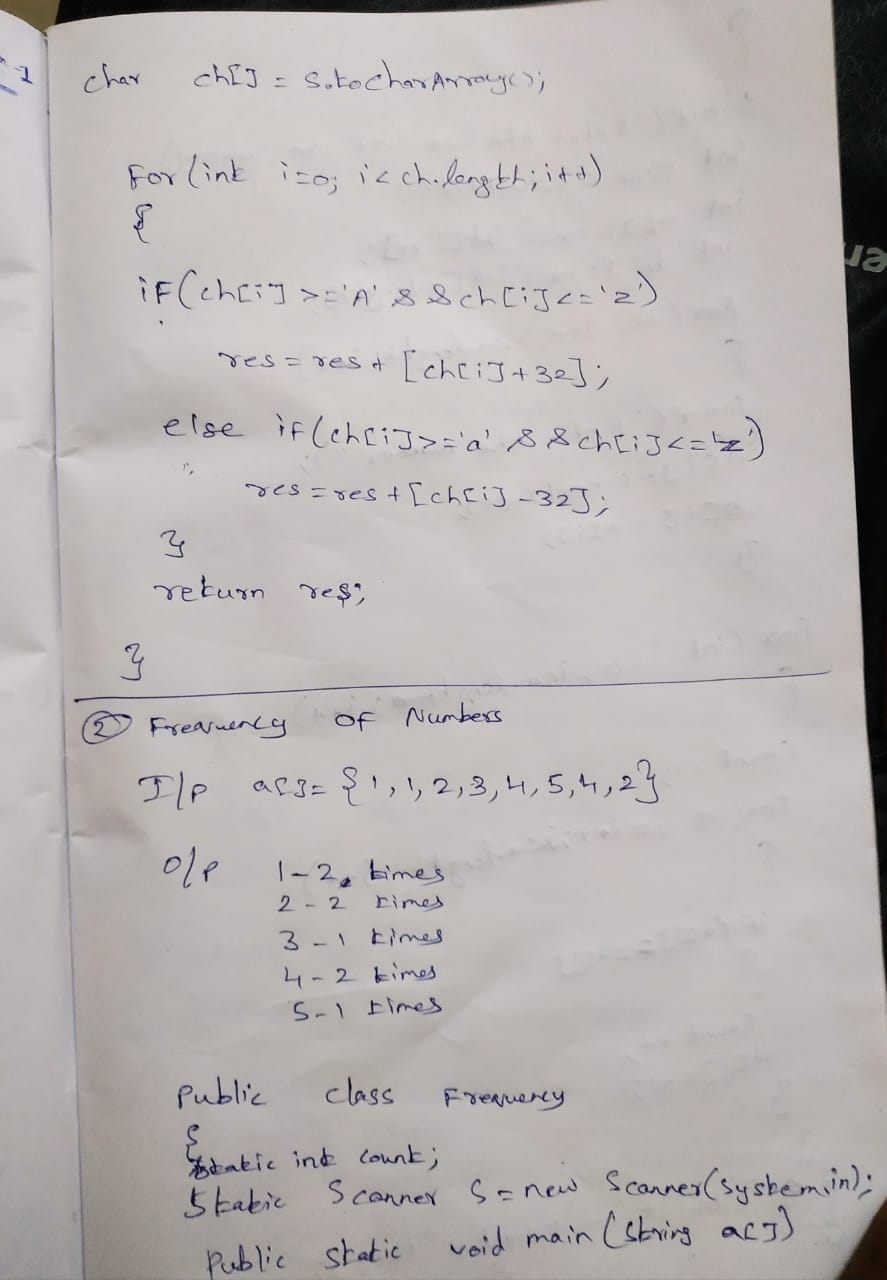 char ch[] = s.toCharArray();
For (int i=0; i< ch.length; i++)
{
iF(ch[i] >='A' && ch[i]<='z')
res = res + [ch[i]+32];
else if(ch[i]>='a' && ch[i]<='z')
res = res + [ch[i] -32];
}
return res;
}
② Frequency OF Numbers
I/p a[]= {1,1,2,3,4,5,4,2}
O/P 1-2 times
2-2 times
3-1 times
4-2 times
5-1 times
Public class Frequency
{
static int count;
Static Scanner S = new Scanner(System.in);
Public static void main (String a[])